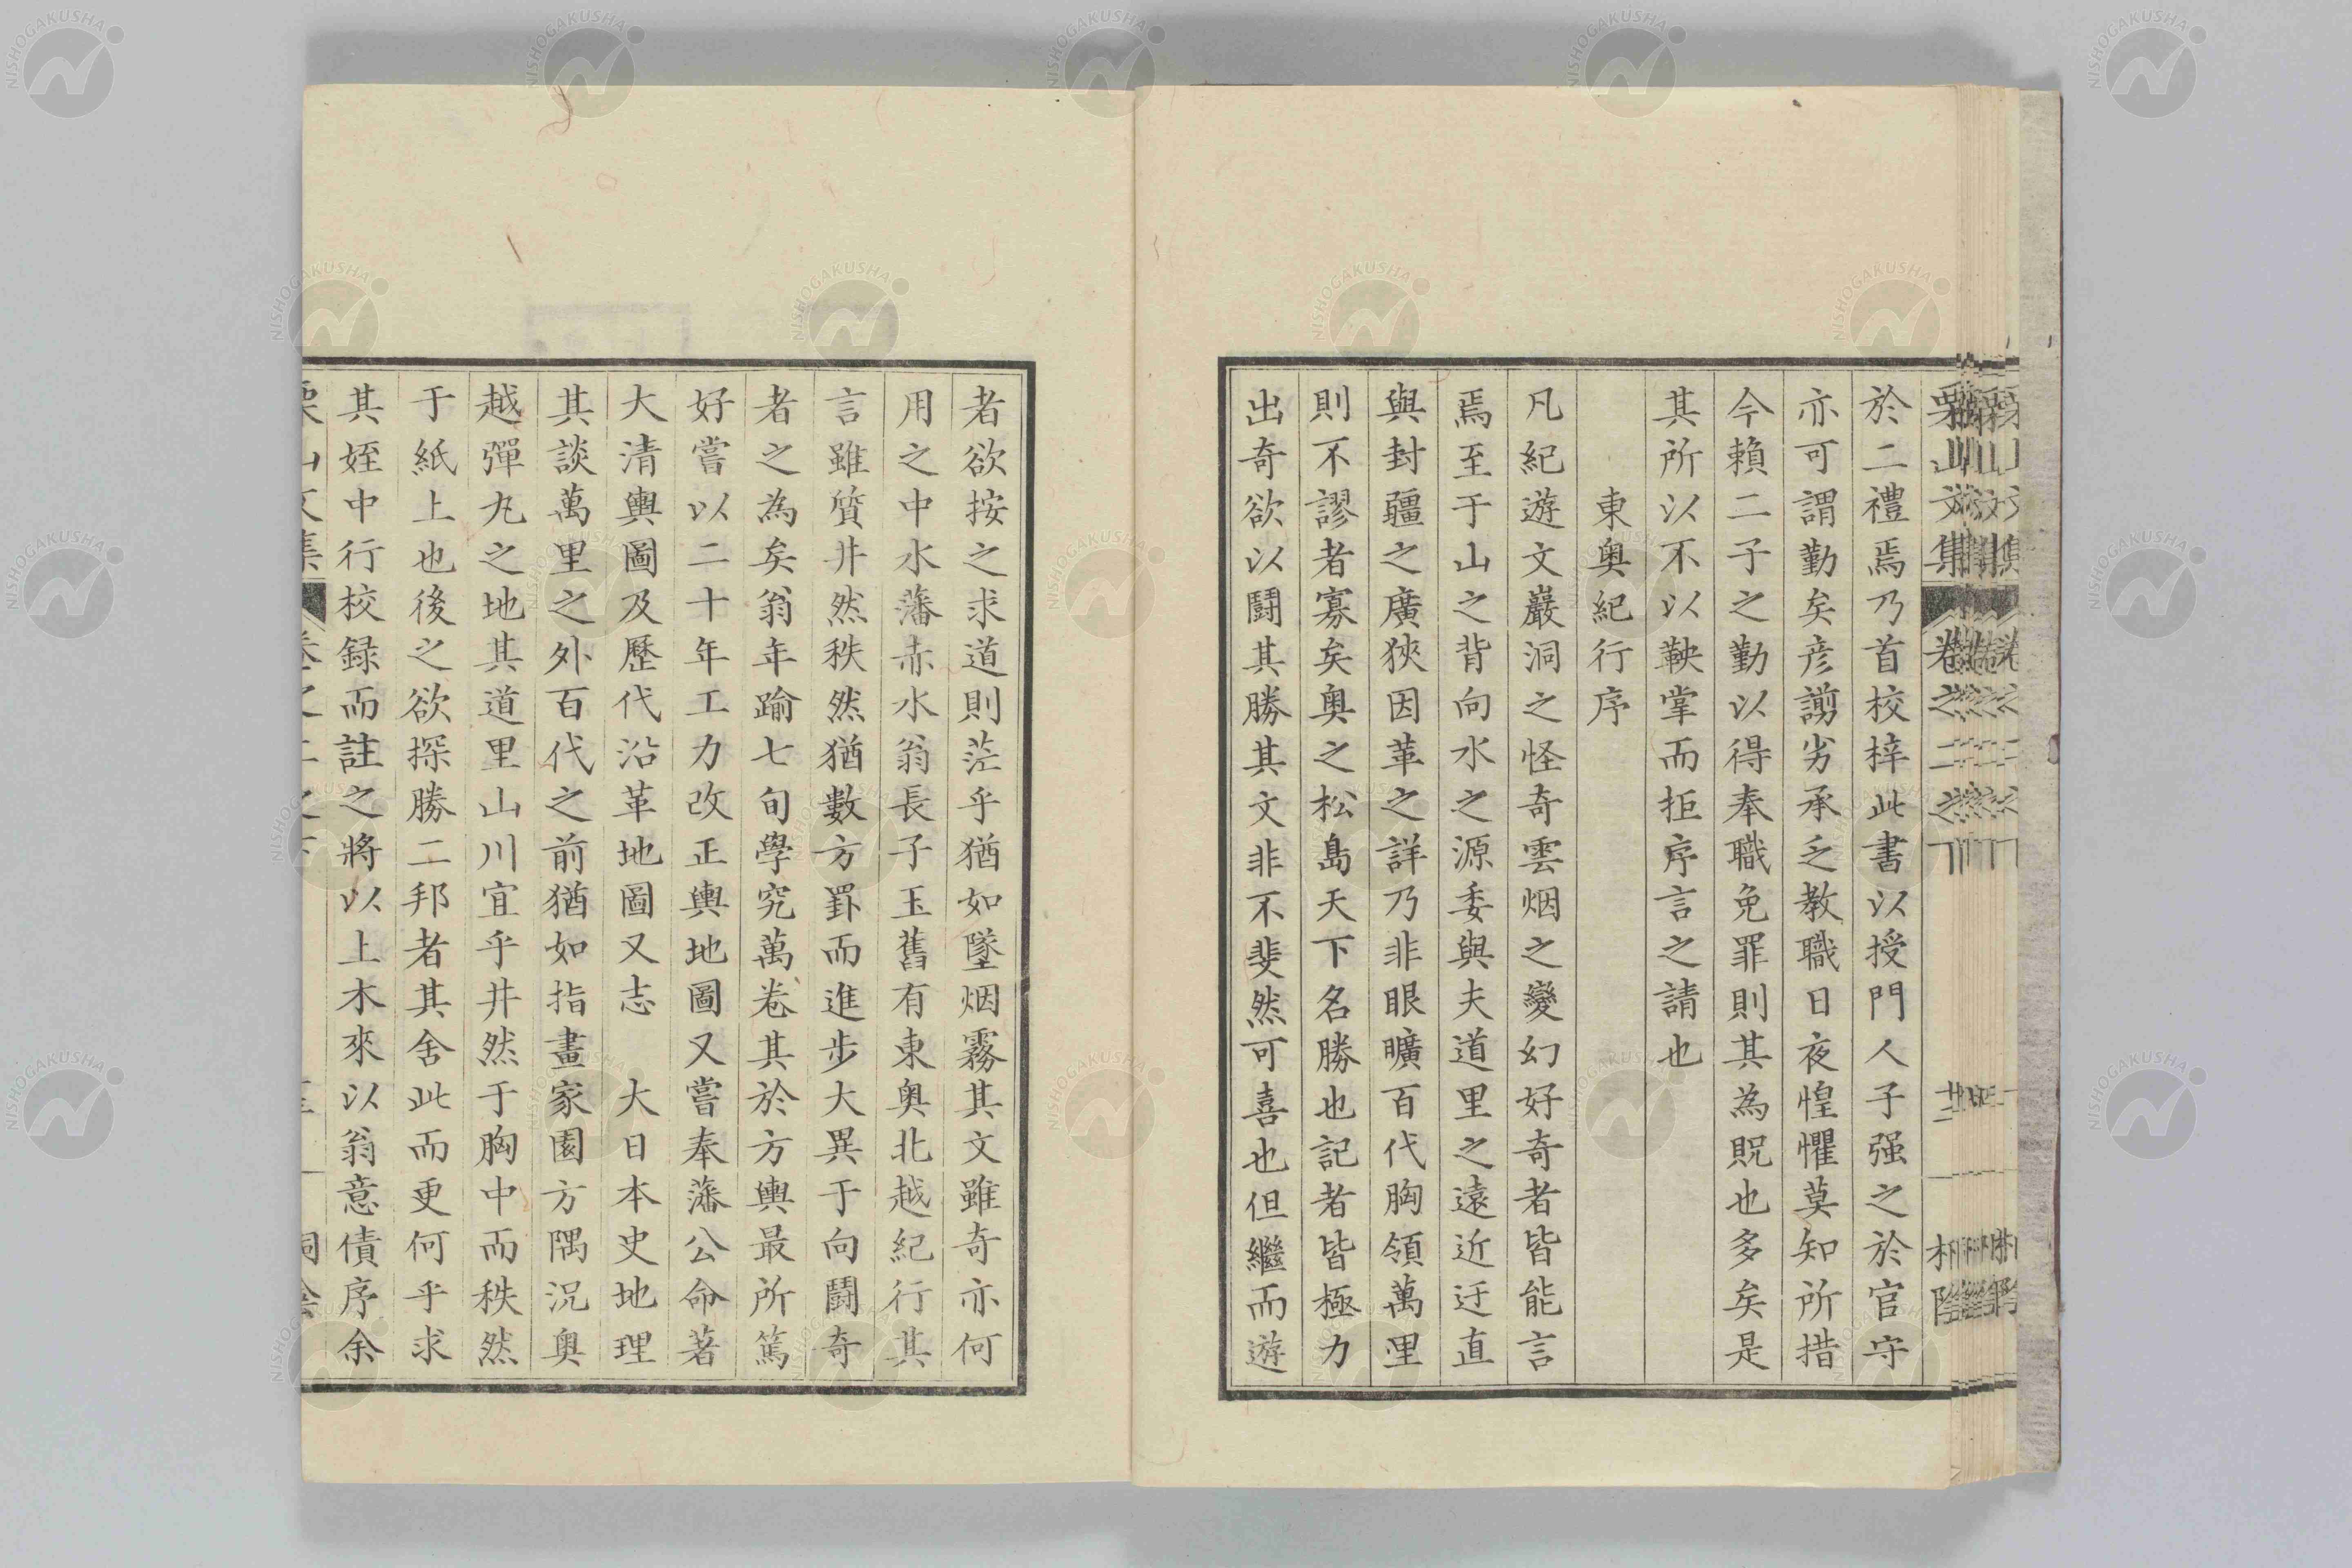 於二禮焉乃首校梓此書以授門人子强之於官守
亦可謂勤矣彦謭劣承乏教職日夜惶懼莫知所措
今賴二子之勤以得奉職免罪則其為貺也多矣是
其所以不以鞅掌而拒序言之請也
東奥紀行序
凡紀遊文巖洞之怪奇雲烟之變幻好奇者皆能言
焉至于山之背向水之源委與夫道里之遠近迂直
與封疆之廣狹因革之詳乃非眼曠百代胸領萬里
則不謬者寡矣奥之松島天下名勝也記者皆極力
出奇欲以鬪其勝其文非不斐然可喜也但繼而遊
者欲按之求道則茫乎猶如墜烟霧其文雖奇亦何
用之中水藩赤水翁長子玉舊有東奥北越紀行其
言雖質井然秩然猶數方罫而進步大異于向鬪奇
者之為矣翁年踰七旬學究萬卷其於方輿最所篤
好嘗以二十年工力改正輿地圖又嘗奉藩公命著
大清輿圖及歷代沿革地圖又志　大日本史地理
其談萬里之外百代之前猶如指畫家園方隅況奥
越彈丸之地其道里山川宜乎井然于胸中而秩然
于紙上也後之欲探勝二邦者其舍此而更何乎求
其姪中行校録而註之將以上木來以翁意債序余
NISHOGAKUSHA